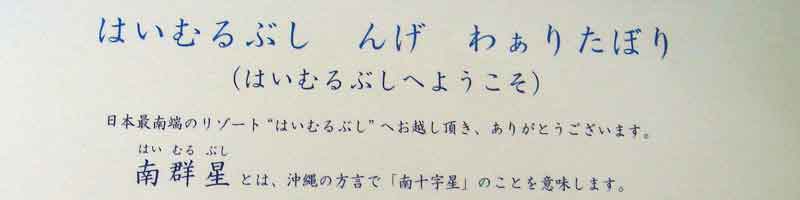 はいむるぶし　んげ　わぁりたぼり
（はいむるぶしへようこそ）
日本最南端のリゾート“はいむるぶし”へお越し頂き、ありがとうございます。
はい むる ぶし
南群星とは、沖縄の方言で「南十字星」のことを意味します。